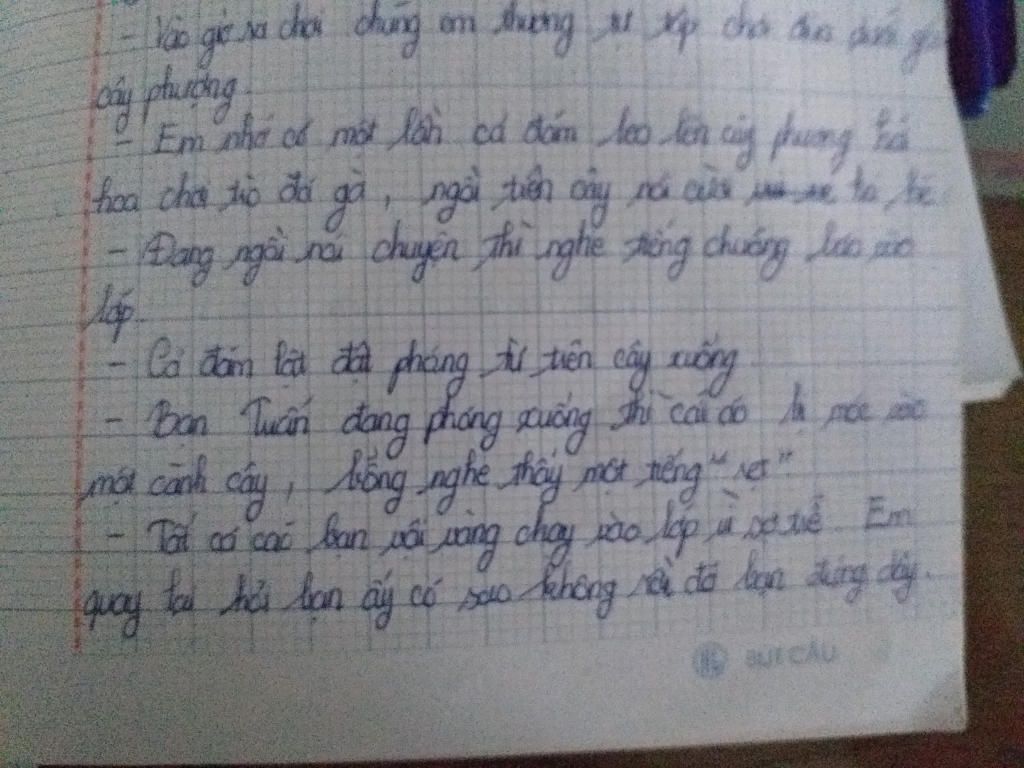 - Vào giờ ra chơi chúng em thường tụ tập chơi đùa dưới
cây phượng.
- Em nhớ có một lần cả đám leo lên cây phượng hái
hoa chơi trò đá gà, ngồi trên cây nói cười
- Đang ngồi nói chuyện thì nghe tiếng chuông báo vào
lớp.
- Cả đám lật đật phóng từ trên cây xuống
- Bạn Tuấn đang phóng xuống thì cái áo bị móc vào
một cành cây, bỗng nghe thấy một tiếng "rẹt"
- Tất cả các bạn vội vàng chạy vào lớp vì sợ trễ Em
quay lại hỏi bạn ấy có sao không rồi đỡ bạn đứng dậy.
BÚT CÂU